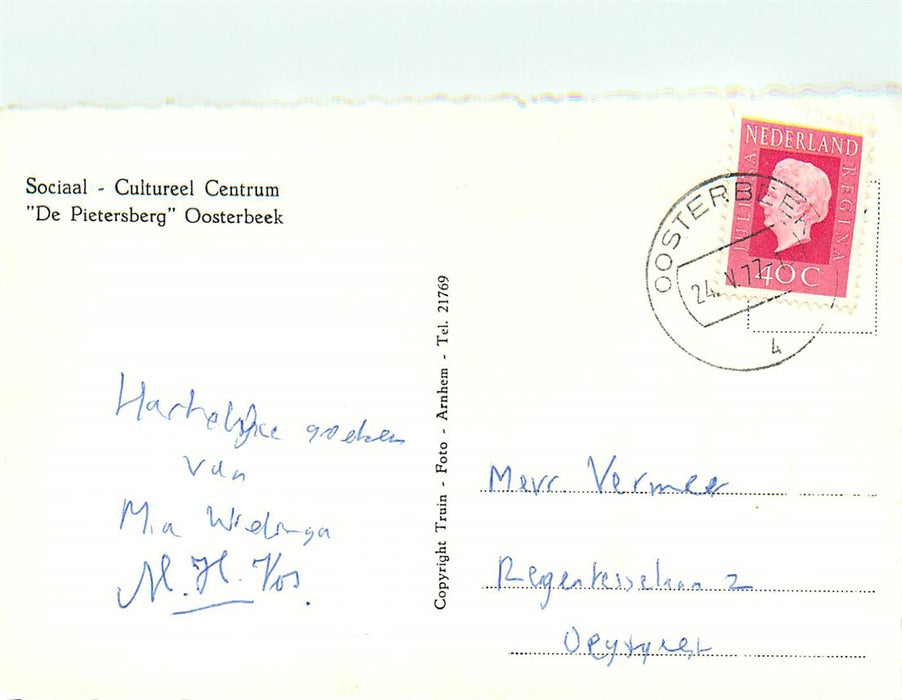 Sociaal - Cultureel Centrum
"De Pietersberg" Oosterbeek
NEDERLAND
JULIANA REGINA
40 C
OOSTERBEEK
24. V. 77
4
Copyright Truin - Foto - Arnhem - Tel. 21769
Hartelijke groeten
van
Mia Wielinga
M. H. Vos.
Mevr. Vermeer
Regentesselaan 2
Oegstgeest